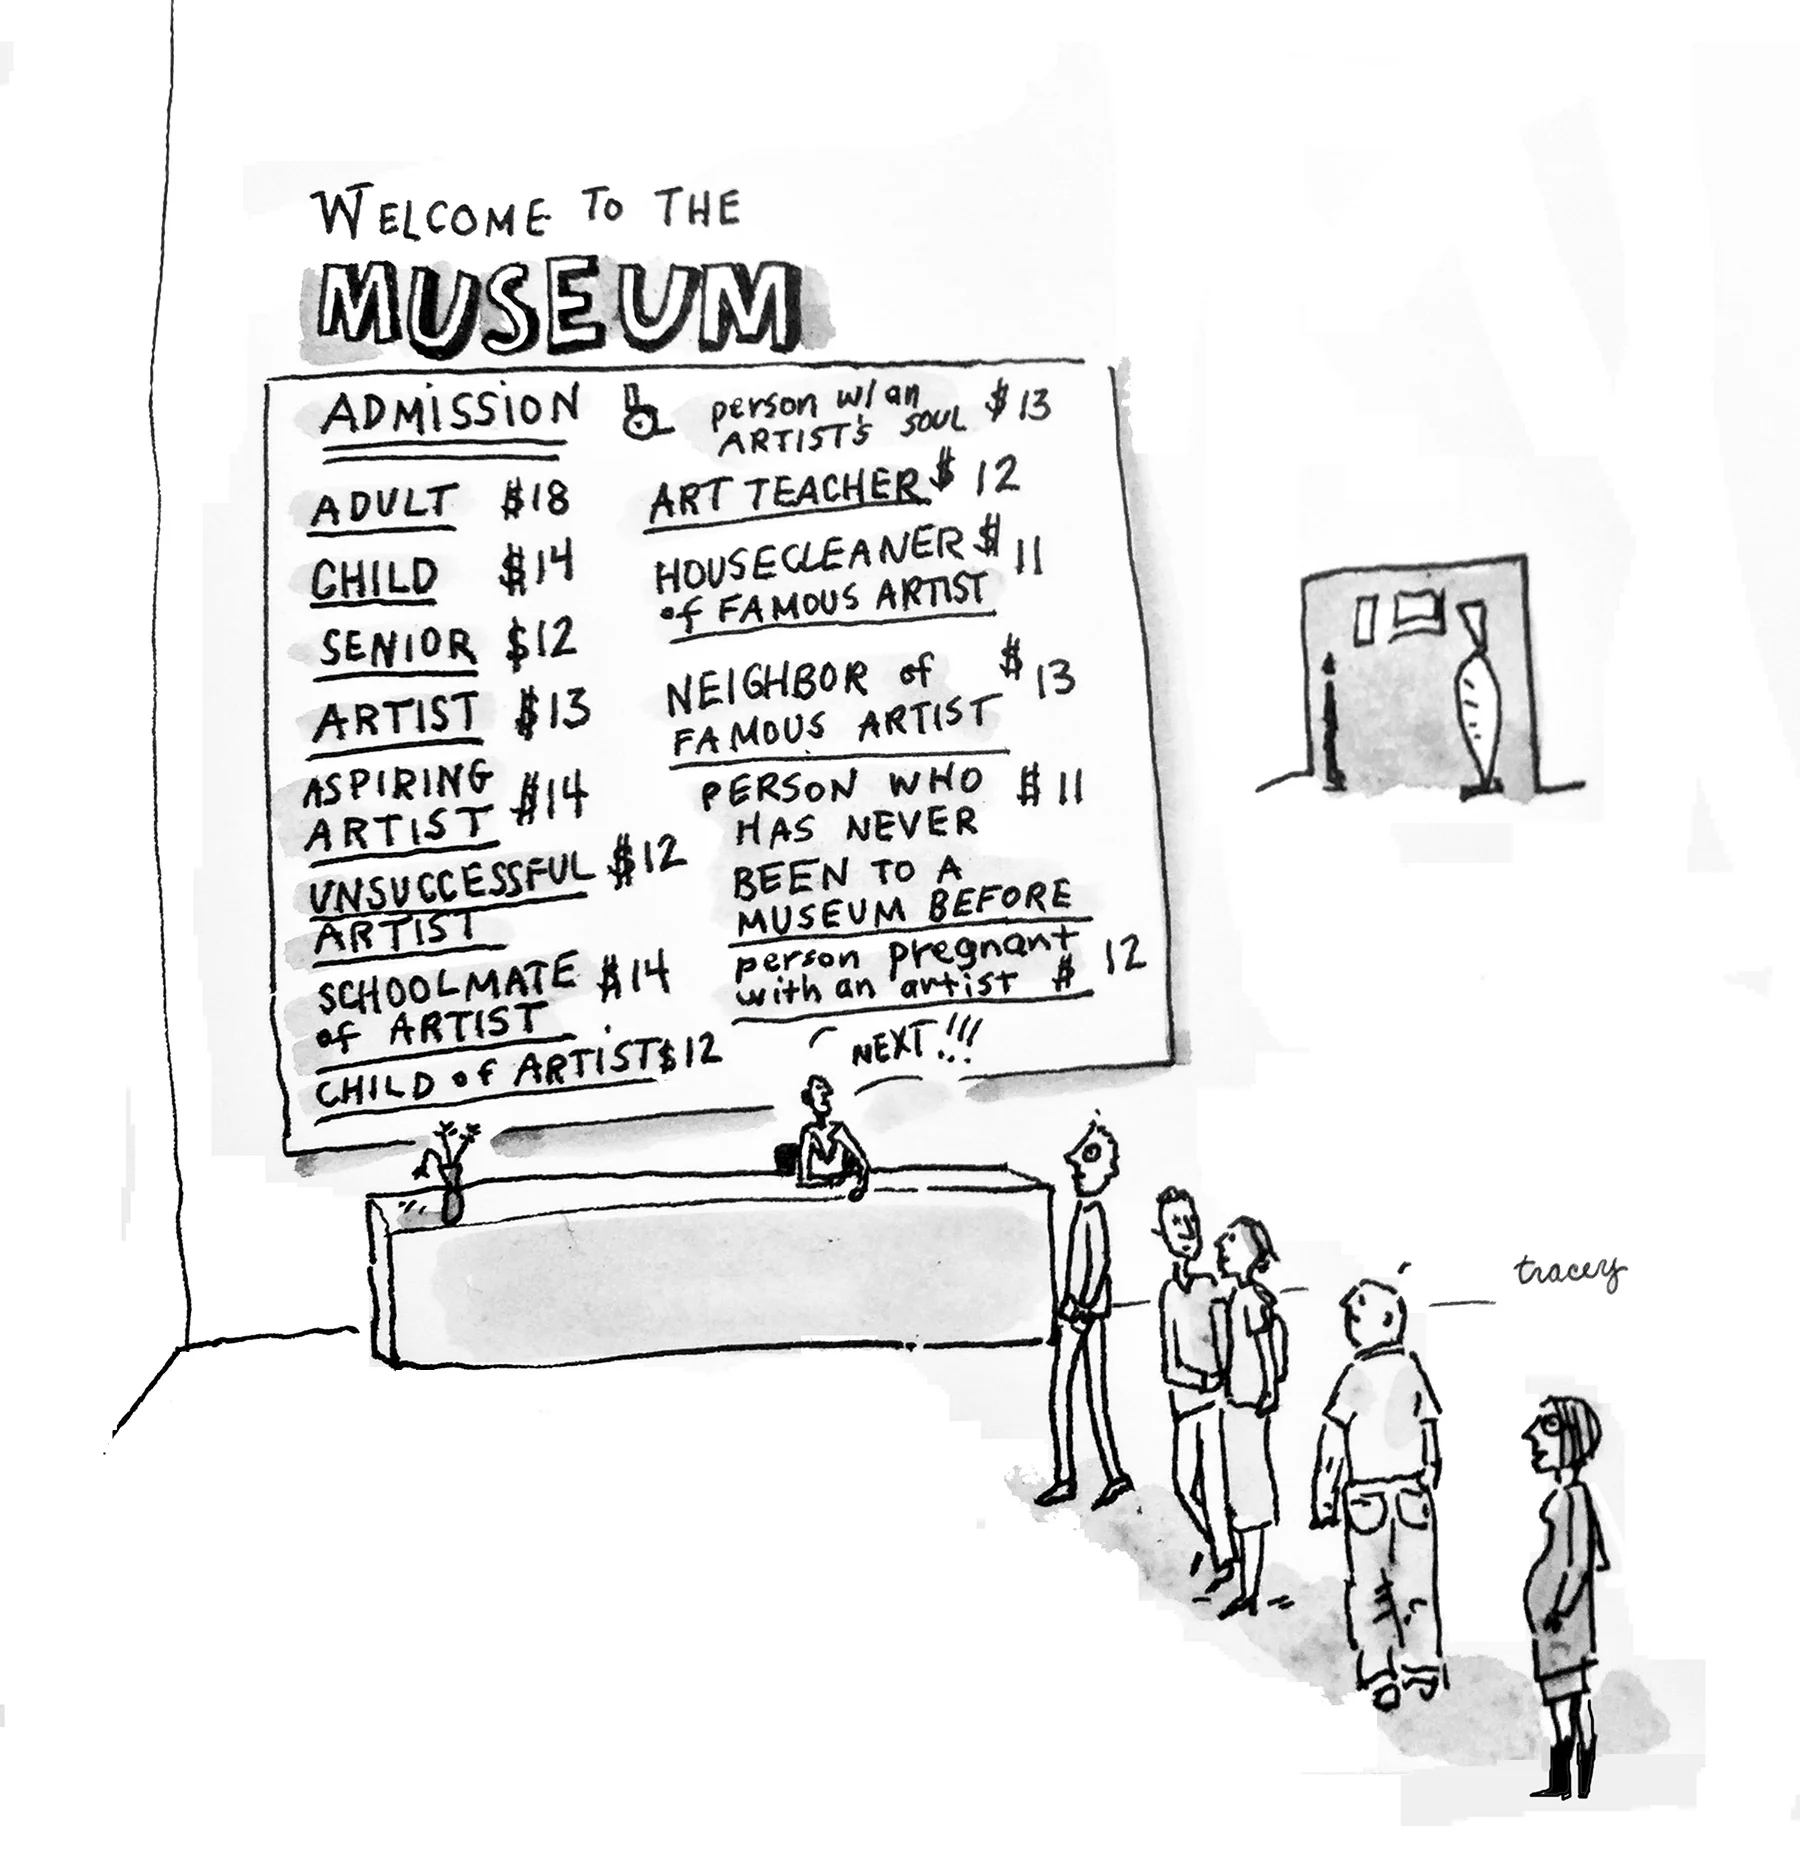 WELCOME TO THE
MUSEUM
ADMISSION
ADULT $18
CHILD $14
SENIOR $12
ARTIST $13
ASPIRING
ARTIST $14
UNSUCCESSFUL $12
ARTIST
SCHOOLMATE $14
of ARTIST
CHILD of ARTIST $12
person w/ an
ARTIST'S SOUL $13
ART TEACHER $12
HOUSECLEANER $11
of FAMOUS ARTIST
NEIGHBOR of $13
FAMOUS ARTIST
PERSON WHO $11
HAS NEVER
BEEN TO A
MUSEUM BEFORE
person pregnant
with an artist $12
NEXT!!!
tracey